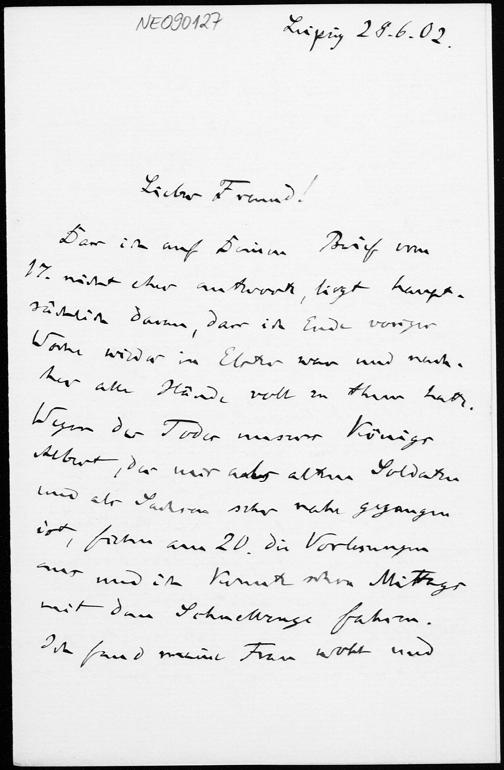 NE090127
Leipzig 28.6.02.
Lieber Freund!
Dass ich auf Deinen Brief vom
17. nicht eher antworte, liegt haupt-
sächlich daran, dass ich Ende voriger
Woche wieder in Elster war und nach-
her alle Hände voll zu thun hatte.
Wegen des Todes unseres Königs
Albert, der mir als altem Soldaten
und als Sachsen sehr nahe gegangen
ist, fielen am 20. die Vorlesungen
aus und ich konnte schon Mittags
mit dem Schnellzuge fahren.
Ich fand meine Frau wohl und